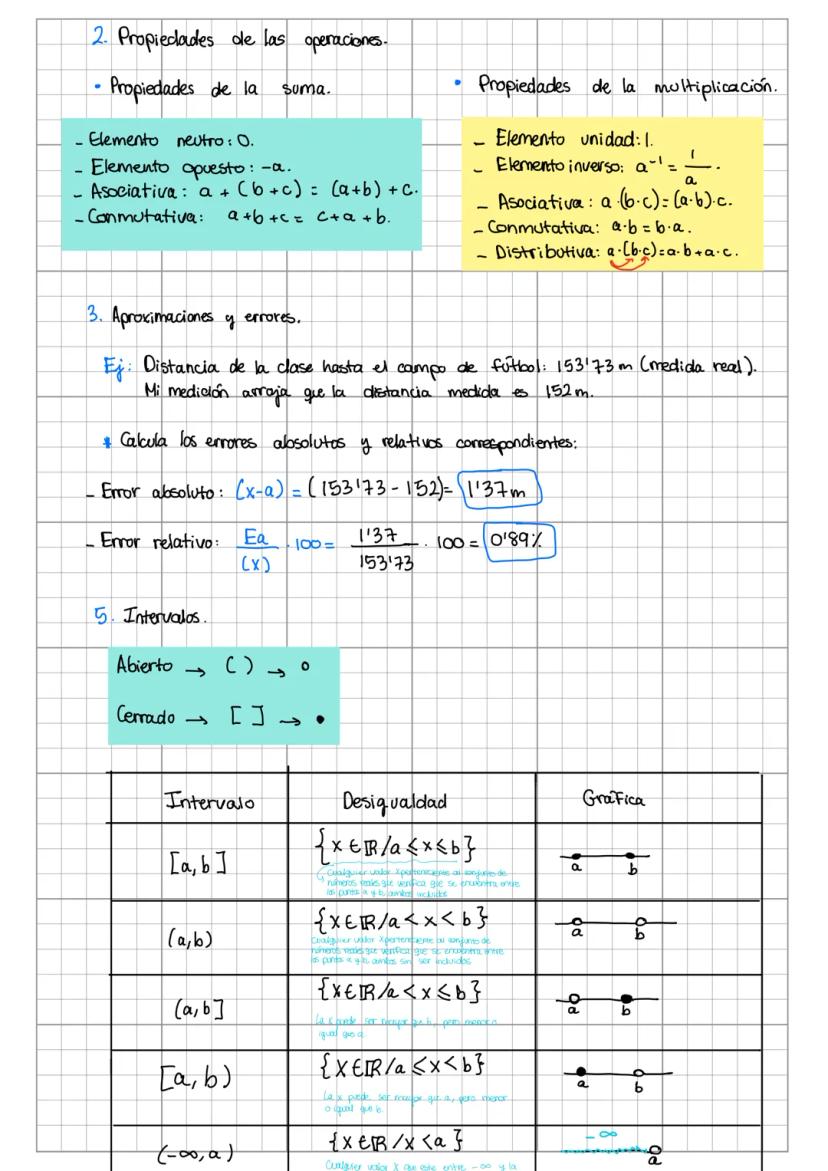 2. Propiedades de las operaciones.
• Propiedades de la suma.
- Elemento neutro: 0.
- Elemento opuesto: -a.
- Asociativa: a + (b+c) = (a+b) + c.
- Conmutativa: a+b+c = c+a+b.
• Propiedades de la multiplicación.
- Elemento unidad: 1.
- Elemento inverso: a⁻¹ = 1/a.
- Asociativa: a·(b·c)=(a·b)·c.
- Conmutativa: a·b = b·a.
- Distributiva: a·(b·c)=a·b+a·c.
3. Aproximaciones y errores.
Ej: Distancia de la clase hasta el campo de fútbol: 153'73 m (medida real).
Mi medición arroja que la distancia medida es 152 m.
* Calcula los errores absolutos y relativos correspondientes:
- Error absoluto: (x-a) = (153'73 - 152) = 1'37 m
- Error relativo: Ea/(x) · 100 = 1'37/153'73 · 100 = 0'89%
5. Intervalos.
Abierto → ( ) → ○
Cerrado → [ ] → •
Intervalo Desigualdad Gráfica
[a,b] {x ∈ ℝ/a ⩽ x ⩽ b} a b
Cualquier valor x perteneciente al conjunto de
números reales que verifica que se encuentra entre
los puntos a y b, ambos incluidos
(a,b) {x ∈ ℝ/a < x < b} a b
Cualquier valor x perteneciente al conjunto de
números reales que verifica que se encuentra entre
los puntos a y b, ambos sin ser incluidos
(a,b] {x ∈ ℝ/a < x ⩽ b} a b
La x puede ser mayor que b, pero menor o
igual que a
[a,b) {x ∈ ℝ/a ⩽ x < b} a b
La x puede ser mayor que a, pero menor
o igual que b
(-∞,a) {x ∈ ℝ/x < a} -∞ a
Cualquier valor x que esté entre -∞ y la